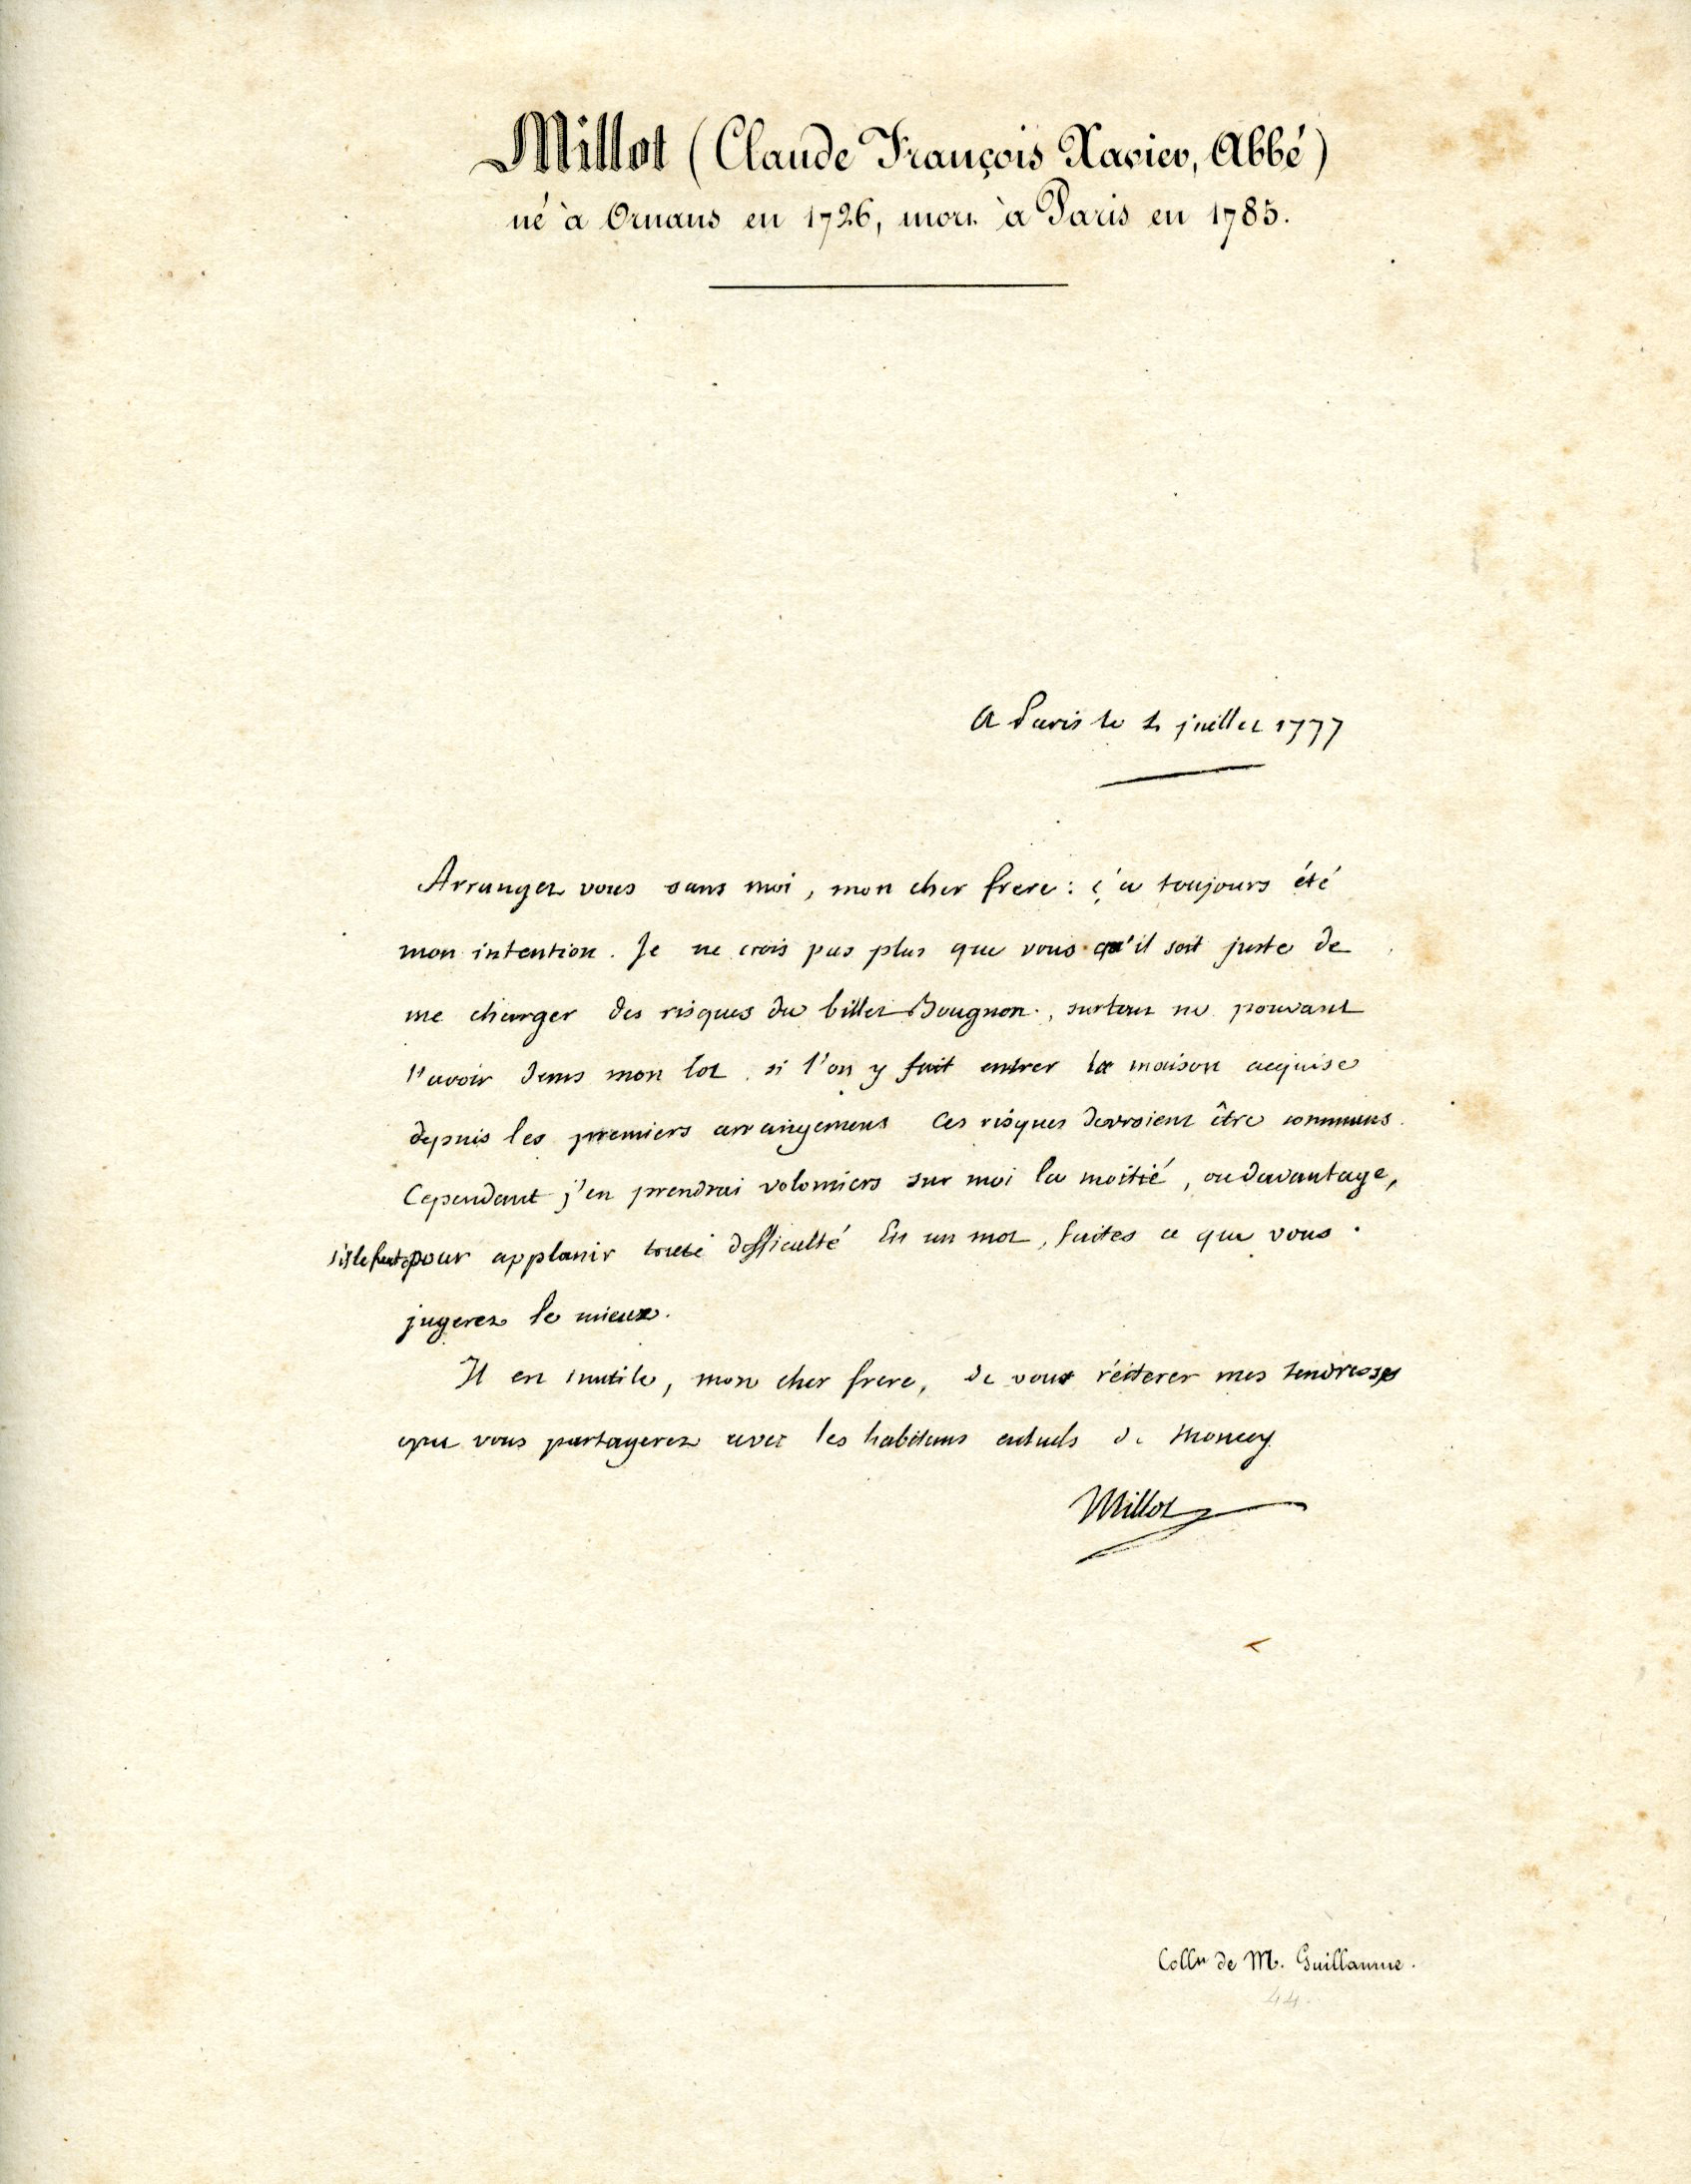 Millot (Claude François Xavier, Abbé)
né à Ornans en 1726, mort à Paris en 1785.
A Paris le juillet 1777
Arrangez vous sans moi, mon cher frere : ç'a toujours été
mon intention. Je ne crois pas plus que vous qu'il soit juste de
me charger des risques du billet Bougnon, surtout ne pouvant
l'avoir dans mon lot si l'on y fait entrer la maison acquise
depuis les premiers arrangemens Ces risques devroient être communs.
Cependant j'en prendrai volontiers sur moi la moitié, ou davantage,
s'il le faut pour applanir toute difficulté En un mot, faites ce que vous
jugerez le mieux.
Il est inutile, mon cher frere, de vous réiterer mes tendresses
que vous partagerez avec les habitans actuels de Moncey
Millot
Colln de M. Guillaume.
44.